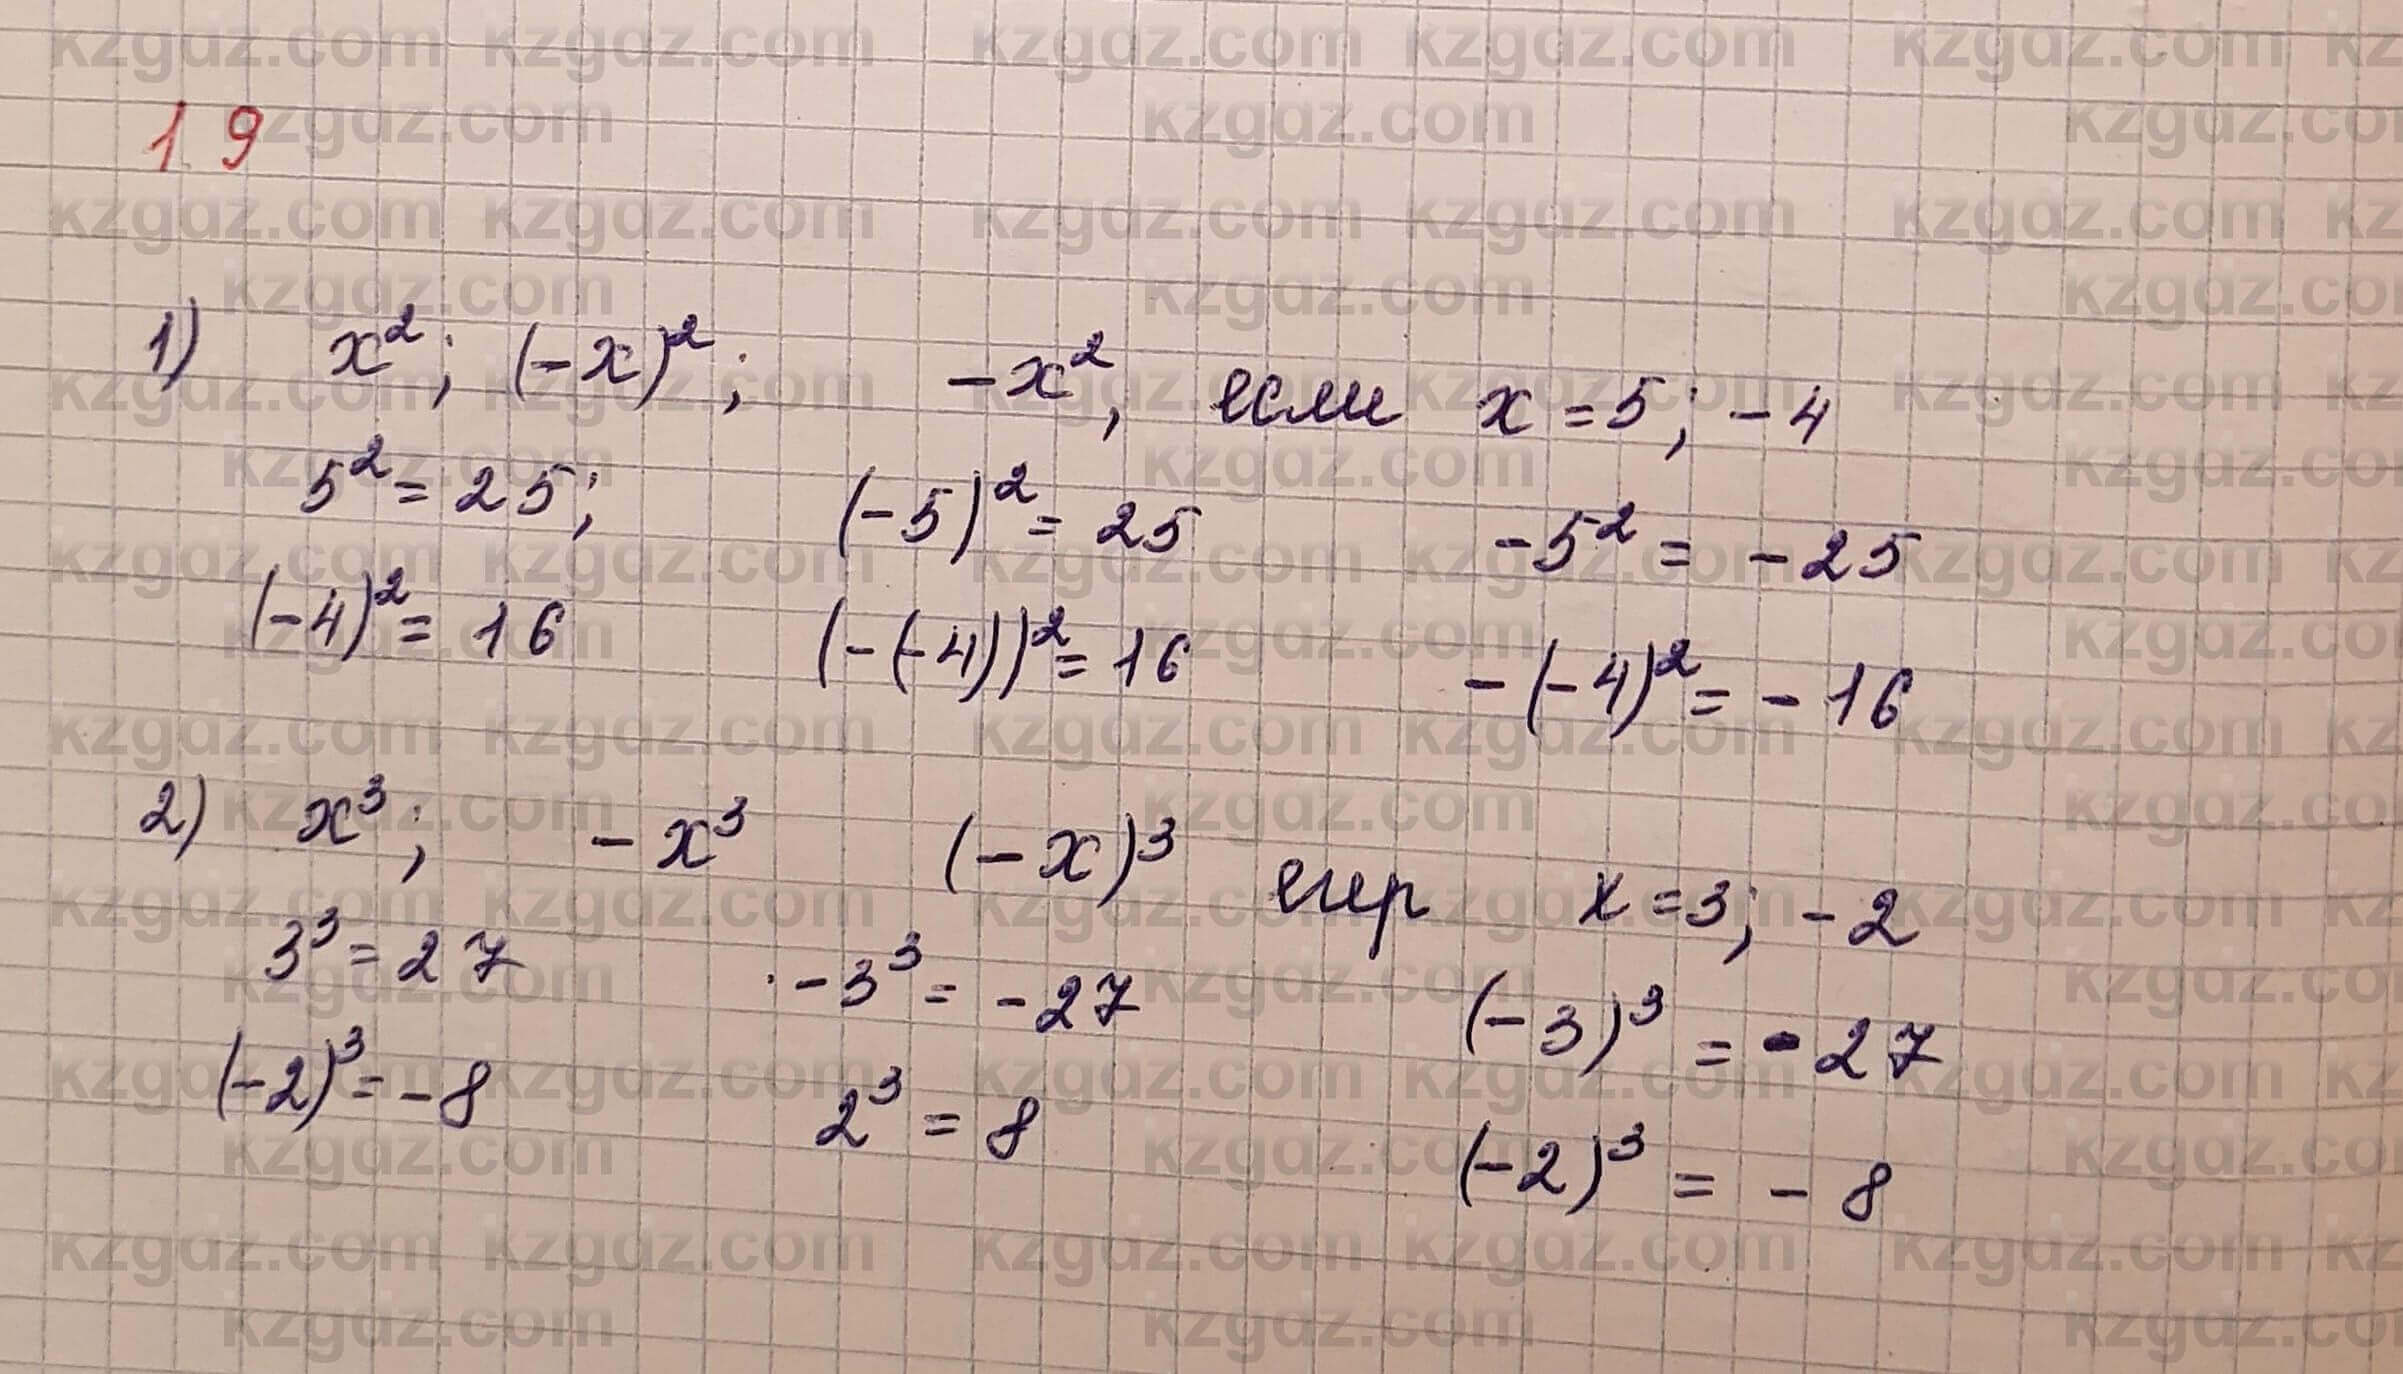 19
1) x²; (-x)²; -x², если x = 5; -4
5² = 25; (-5)² = 25 -5² = -25
(-4)² = 16 (-(-4))² = 16 -(-4)² = -16
2) x³; -x³ (-x)³ егер x = 3; -2
3³ = 27 -3³ = -27 (-3)³ = -27
(-2)³ = -8 2³ = 8 (-2)³ = -8
kzgdz.com